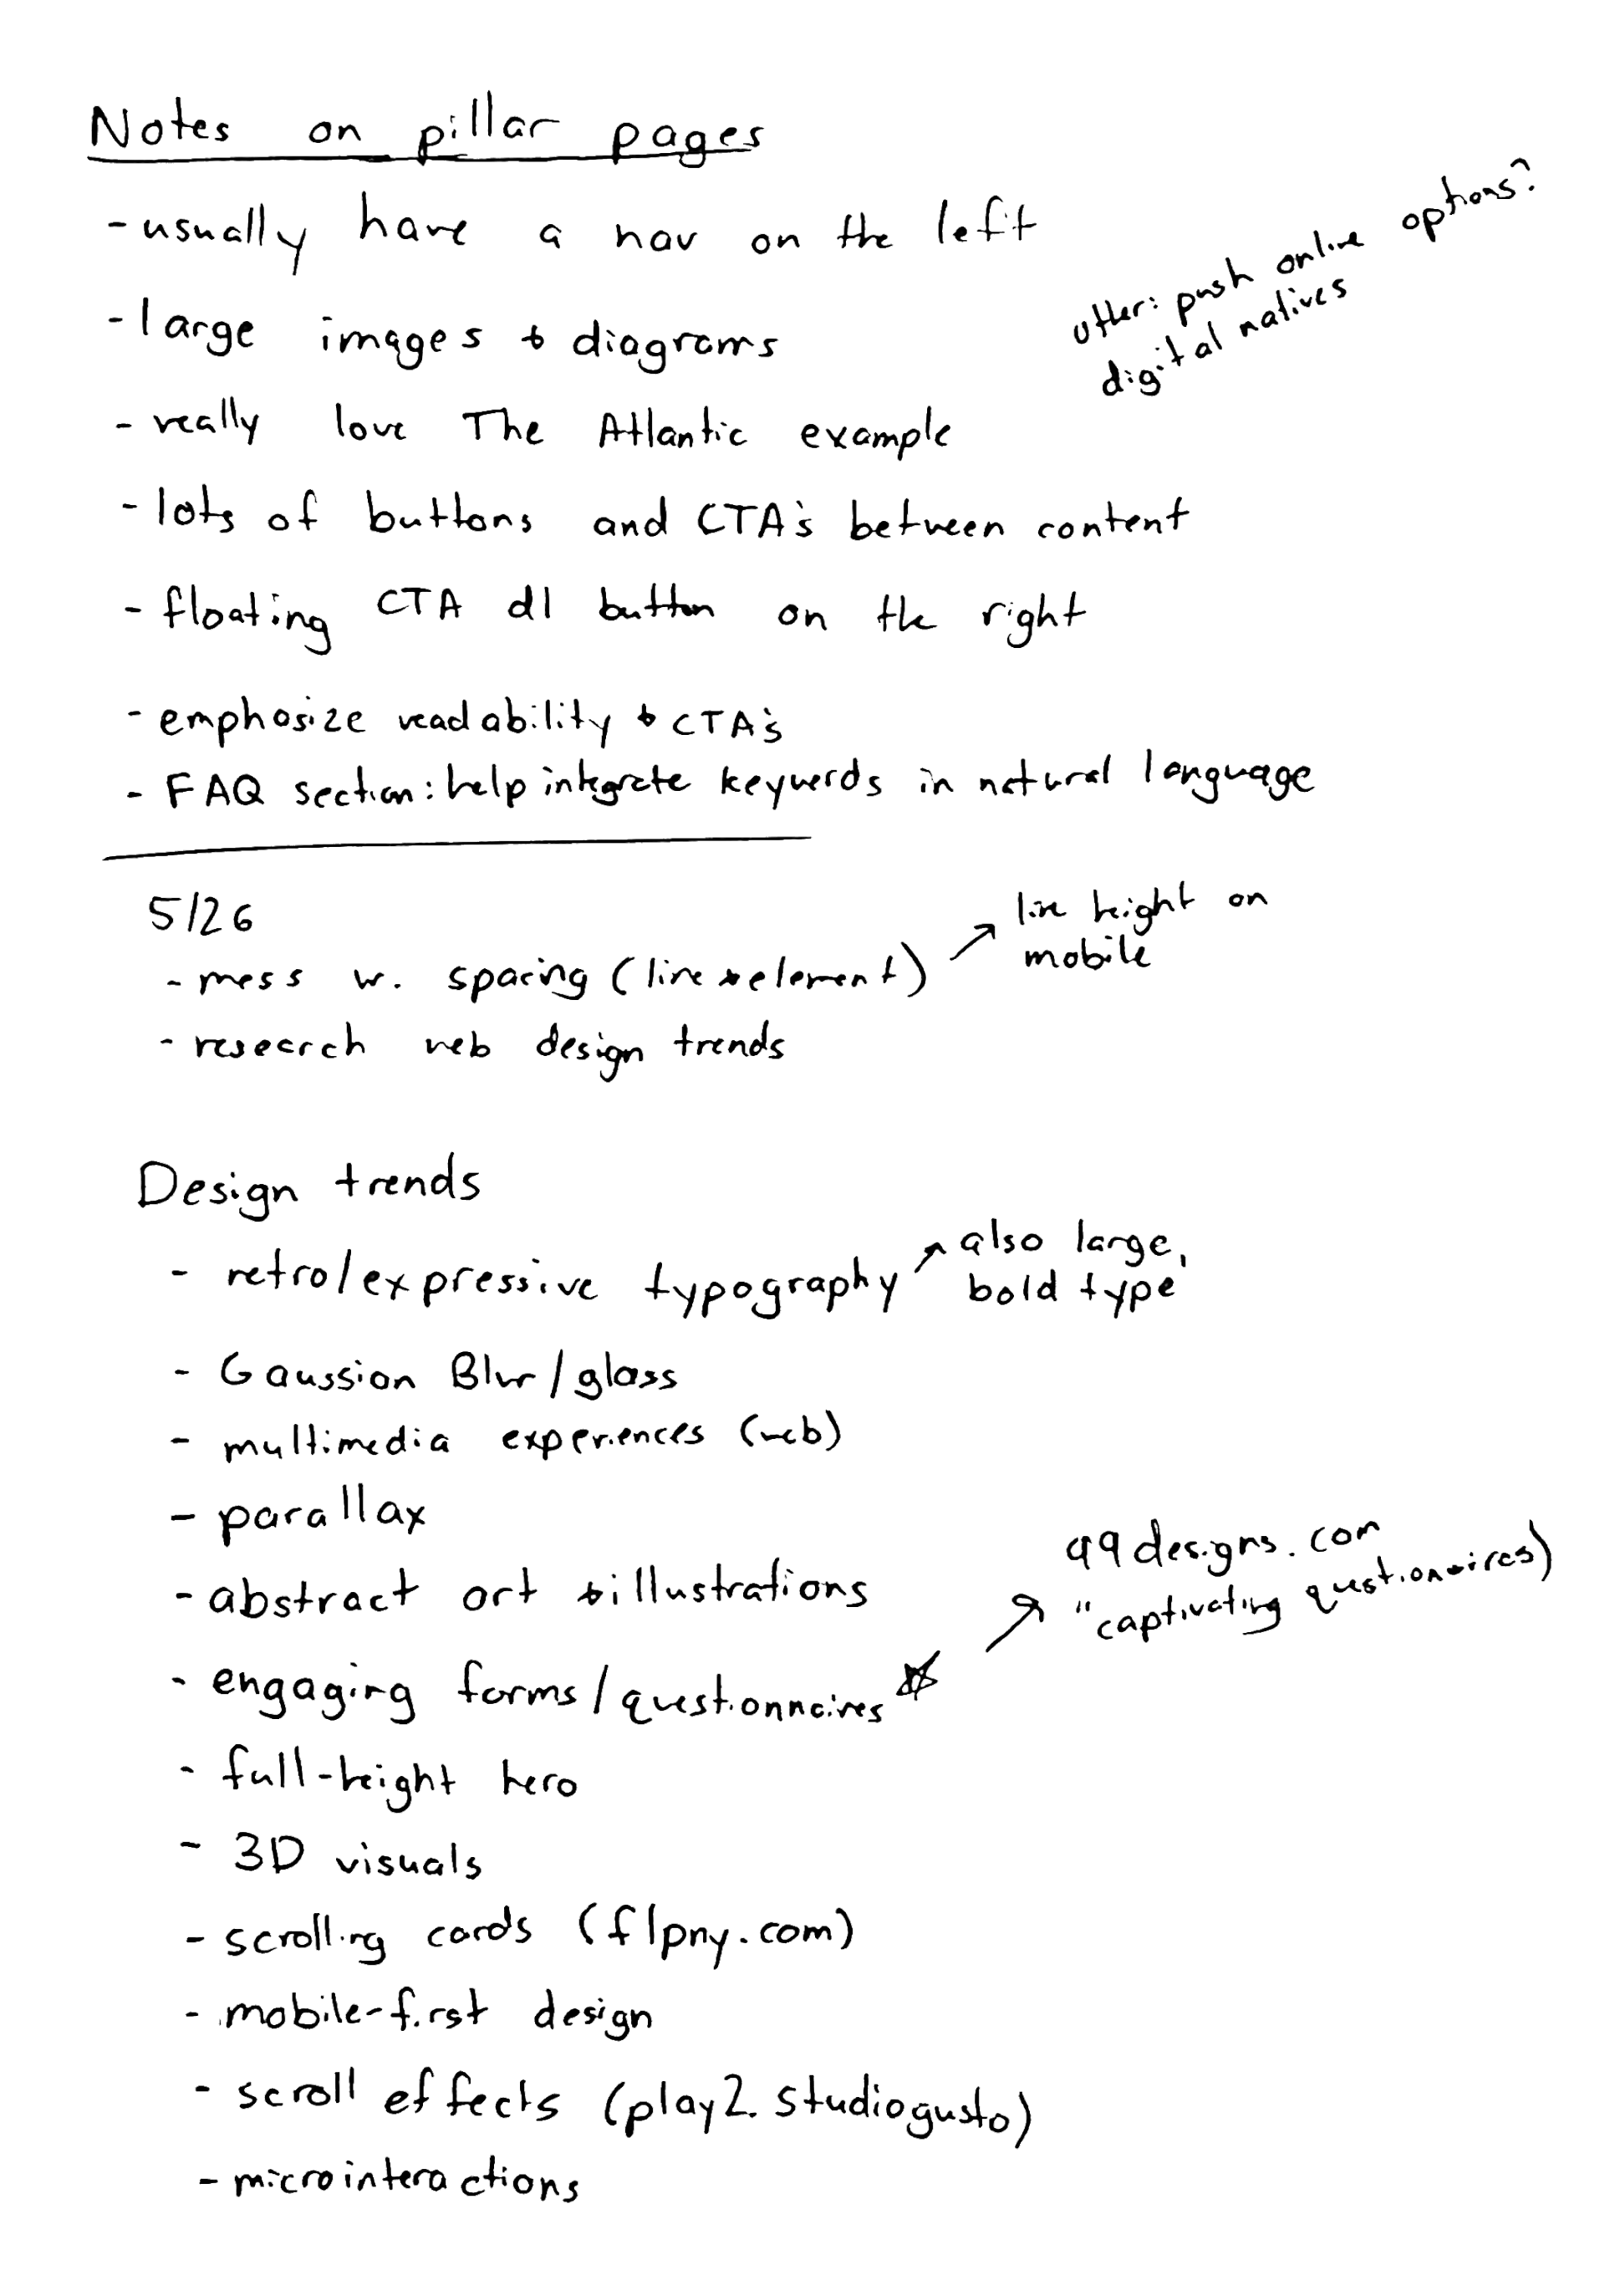 Notes on pillar pages
- usually have a nav on the left
push online options?
digital natives
- large images + diagrams
- really love The Atlantic example
- lots of buttons and CTA's between content
- floating CTA dl button on the right
- emphasize readability + CTA's
- FAQ section: help integrate keywords in natural language
5/26
- mess w. spacing (line + element) ↗ line height on
mobile
- research web design trends
Design trends
- retro/expressive typography ↗ also large,
bold type
- Gaussian Blur/glass
- multimedia experiences (web)
- parallax
- abstract art + illustrations
- engaging forms/questionnaires ☆ ↗ 99designs.com
"captivating questionnaires)
- full-height hero
- 3D visuals
- scrolling cards (flpny.com)
- mobile-first design
- scroll effects (play2.studiogusto)
- microinteractions